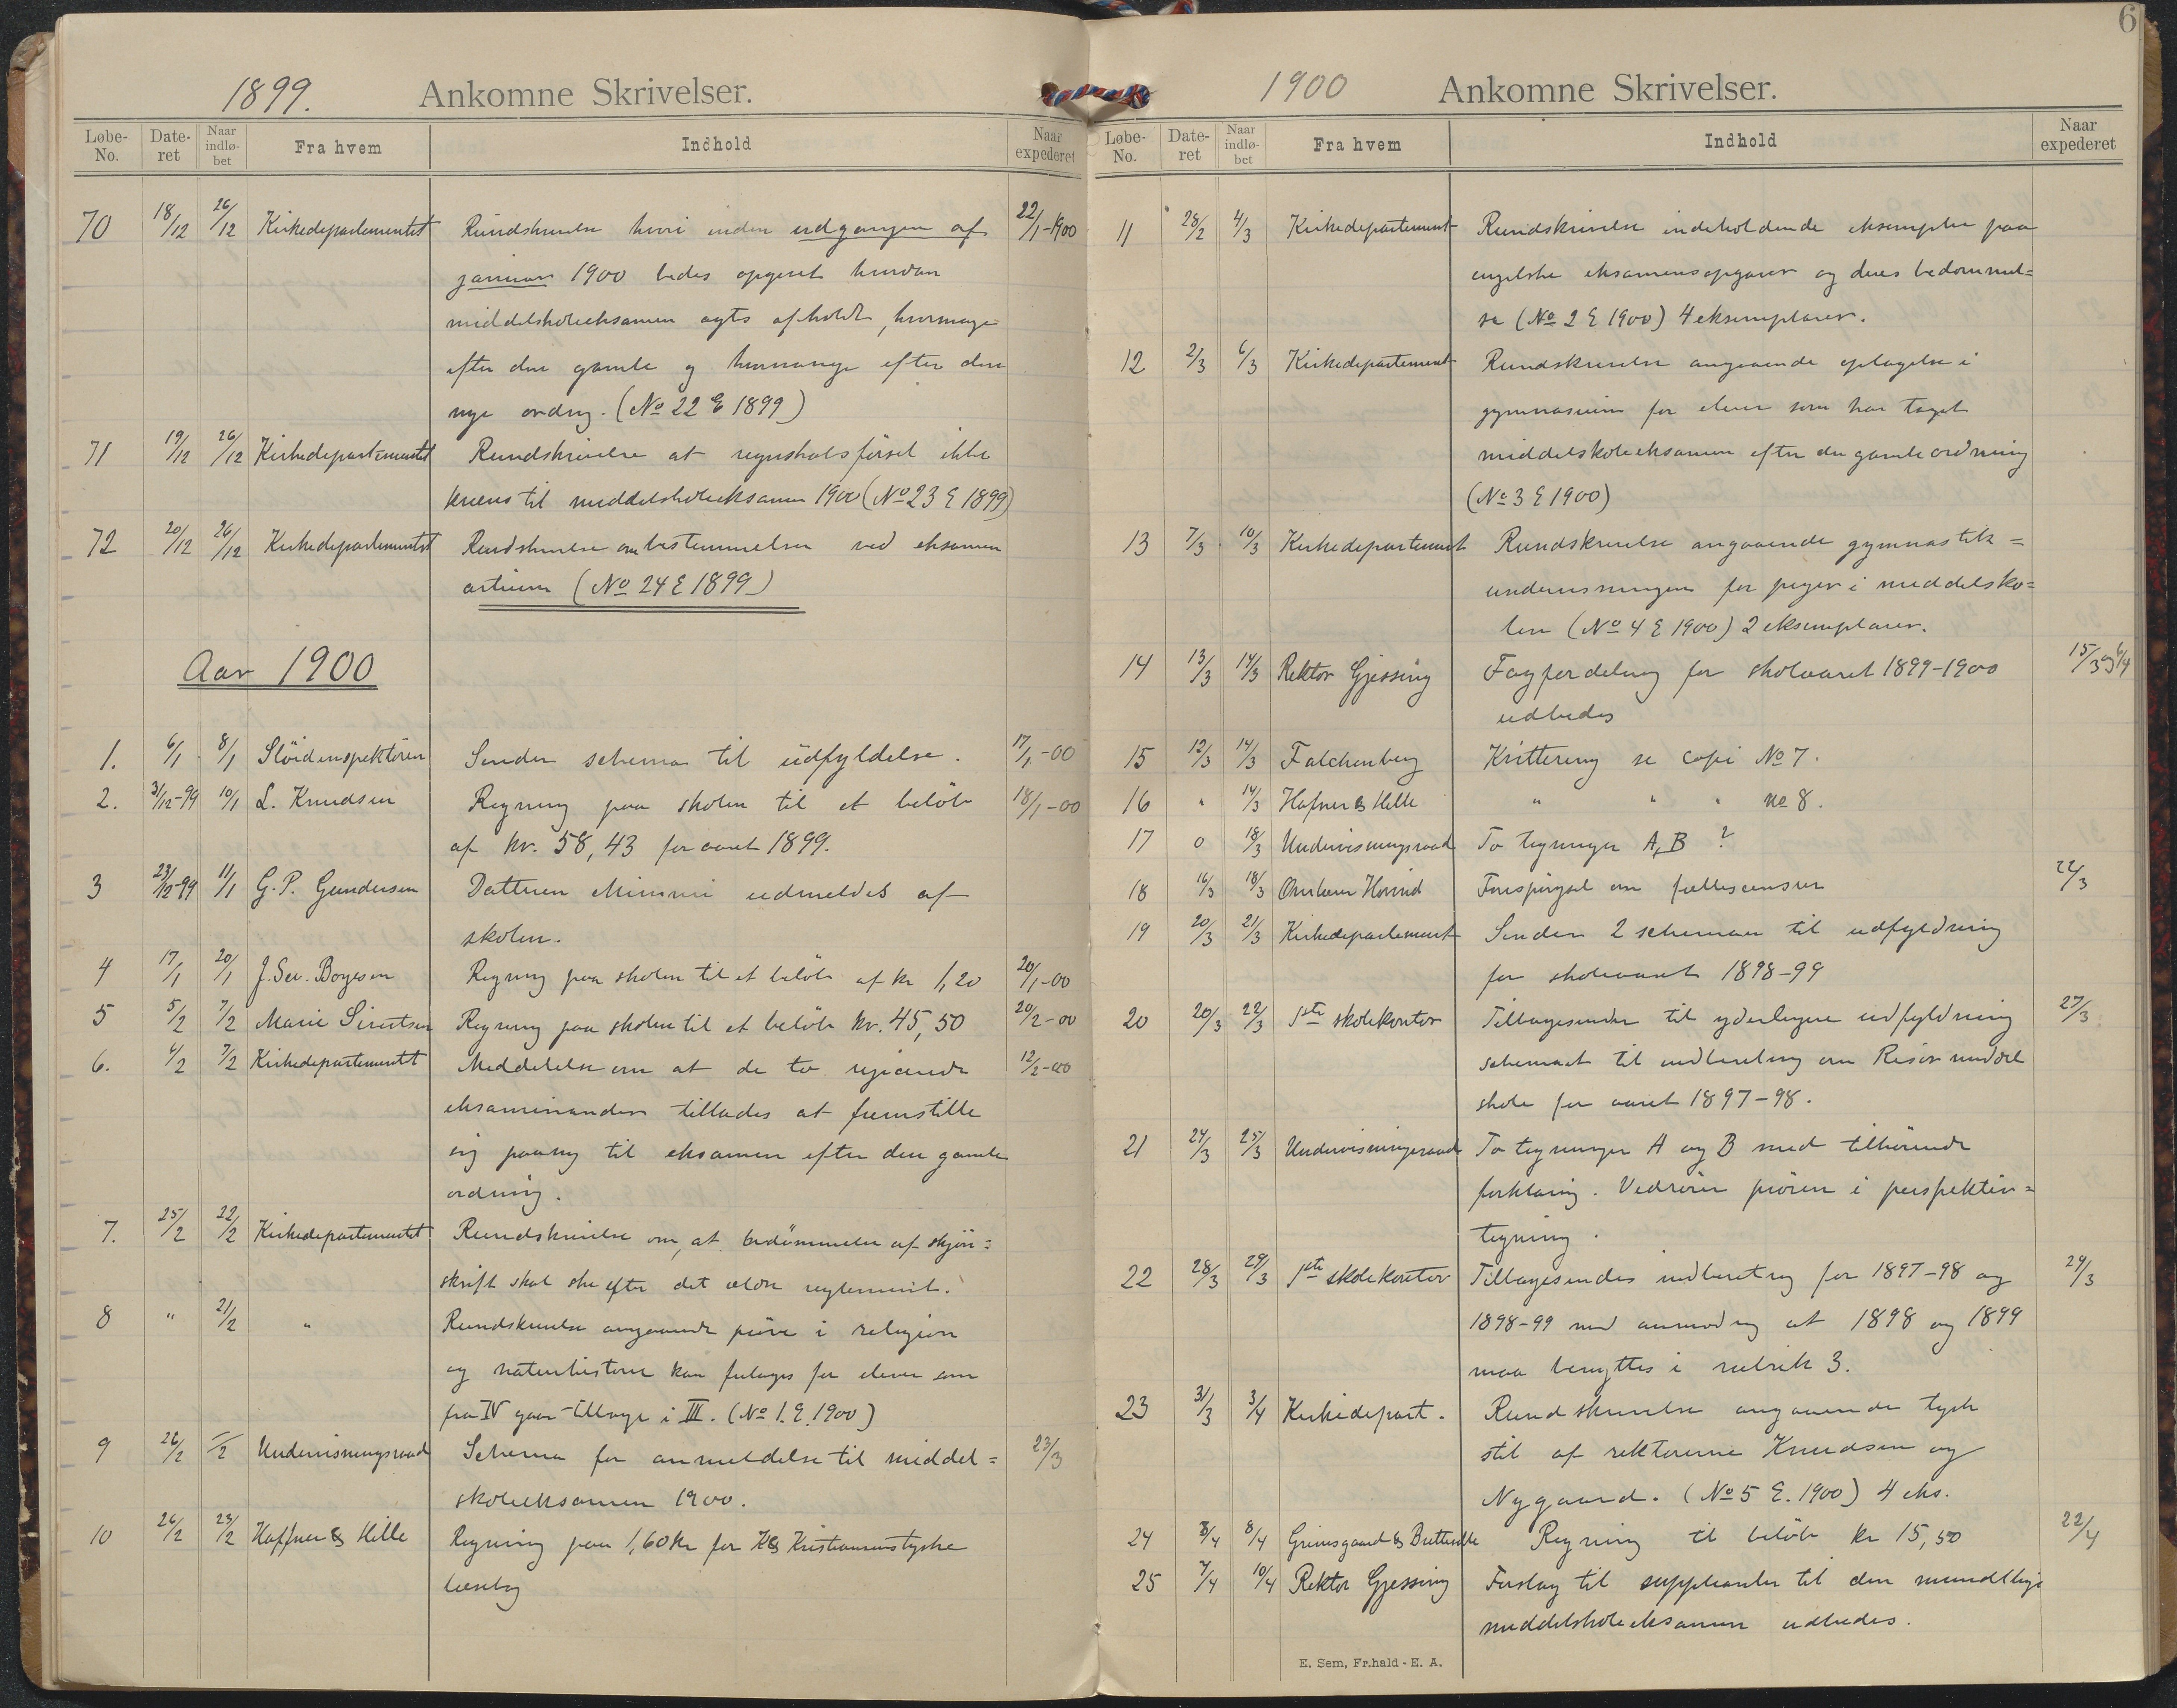 1899. Ankomne Skrivelser.
Løbe-No. Dateret Naar indløbet Fra hvem Indhold Naar expederet
70 18/12 26/12 Kirkedepartementet Rundskrivelse hvori inden udgangen af 22/1-1900
januar 1900 bedes opgivet hvordan
middelskoleeksamen agts afholdt, hvormange
efter den gamle og hvormange efter den
nye ordng. (No 22 E 1899)
71 19/12 26/12 Kirkedepartementet Rundskrivelse at regnskabsførsel ikke
kræves til middelskoleeksamen 1900 (No 23 E 1899)
72 20/12 26/12 Kirkedepartementet Rundskrivelse om bestemmelser ved eksamen
artium (No 24 E 1899)
Aar 1900
1. 6/1 8/1 Slöidinspektören Sender schema til udfyldelse. 17/1-00
2. 31/12-99 10/1 L. Knudsen Regning paa skolen til et beløb 18/1-00
af kr. 58,43 for aaret 1899.
3 23/12-99 11/1 G. P. Gundersen Datteren Mimmi udmeldes af
skolen.
4 17/1 20/1 J. Sev. Boyesen Regning paa skolen til et beløb af kr 1,20 20/1-00
5 5/2 7/2 Marie Sivertsen Regning paa skolen til et beløb kr. 45,50 20/2-00
6. 6/2 7/2 Kirkedepartementet Meddelelse om at de to rejicerede 12/2-00
eksaminander tillades at fremstille
sig paany til eksamen efter den gamle
ordning.
7. 25/2 22/2 Kirkedepartementet Rundskrivelse om, at bedömmelse af skjön=
skrift skal ske efter det ældre reglement.
8 " 21/2 " Rundskrivelse angaaende prøve i religion
og naturhistorie kan foretages for elever som
fra IV gaar tilbage i III. (No 1. E. 1900)
9 26/2 Undervisningsraad Schema for anmeldelse til middel= 23/3
skoleeksamen 1900.
10 26/2 Haffner & Hille Regning paa 1,60 kr for Kristiansens tyske
læsebog
6
1900 Ankomne Skrivelser.
Løbe-No. Dateret Naar indløbet Fra hvem Indhold Naar expederet
11 28/2 4/3 Kirkedepartement Rundskrivelse indeholdende eksempler paa
engelske eksamensopgaver og deres bedømmel=
se (No 2 E 1900) 4 eksemplarer.
12 2/3 6/3 Kirkedepartement Rundskrivelse angaaende optagelse i
gymnasium for elever som har taget
middelskoleeksamen efter den gamle ordning
(No 3 E 1900)
13 7/3 10/3 Kirkedepartement Rundskrivelse angaaende gymnastik=
undervisningen for piger i middelsko=
len (No 4 E 1900) 2 eksemplarer.
14 13/3 14/3 Rektor Gjessing Fagfordeling for skoleaaret 1899-1900 15/3 og 6/4
udbedes
15 12/3 14/3 Falchenberg Kvittering se copi No 7.
16 " 14/3 Hafner & Hille " " " No 8.
17 0 18/3 Undervisningsraad To tegninger A, B ?
18 16/3 18/3 Forespørgsel om fællescensur 22/3
19 20/3 21/3 Kirkedepartement Sender 2 schemaer til udfyldning
for skoleaaret 1898-99
20 20/3 22/3 1ste skolekontor Tilbagesender til yderligere udfyldning 27/3
schemaet til indberetning om Risør middel
skole for aaret 1897-98.
21 24/3 25/3 Undervisningsraad To tegninger A og B med tilhørende
forklaring. Vedrører prøven i perspektiv=
tegning.
22 28/3 29/3 1ste skolekontor Tilbagesendes indberetng for 1897-98 og 29/3
1898-99 med anmodng at 1898 og 1899
maa benyttes i rubrik 3.
23 31/3 3/4 Kirkedepart. Rundskrivelse angaaende tysk
stil af rektorerne Knudsen og
Nygaard. (No 5 E. 1900) 4 eks.
24 8/4 8/4 Grimsgaard & Regning til beløb kr 15,50 22/4
25 7/4 10/4 Rektor Gjessing Forslag til suppleanter til den mundtlige
middelskoleeksamen udbedes.
E. Sem, Fr.hald - E. A.